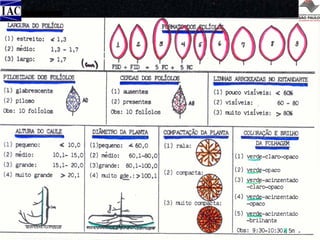 IAC
SÃO PAULO
LARGURA DO FOLÍOLO
(1) estreito: < 1,3
(2) médio: 1,3 - 1,7
(3) largo: > 1,7
(5cm)
1 2 3 4 5 6 7 8 9
FSD = FID = 5 FC = 5 RC
PILOSIDADE DOS FOLÍOLOS
(1) glabrescente
(2) piloso
Obs: 10 folíolos
A8
CERDAS DOS FOLÍOLOS
(1) ausentes
(2) presentes
Obs: 10 folíolos
A8
LINHAS ARROXEADAS NO ESTANDARTE
(1) pouco visíveis: < 60%
(2) visíveis: 60 - 80
(3) muito visíveis: > 80%
ALTURA DO CAULE
(1) pequeno: < 10,0
(2) médio: 10,1- 15,0
(3) grande: 15,1- 20,0
(4) muito grande > 20,1
DIÂMETRO DA PLANTA
(1)pequeno: < 60,0
(2) médio: 60,1-80,0
(3)grande: 80,1-100,0
(4) muito gde.: >100,1
COMPACTAÇÃO DA PLANTA
(1) rala:
(2) compacta:
(3) muito compacta:
COLORAÇÃO E BRILHO
DA FOLHAGEM
(1) verde-claro-opaco
(2) verde-opaco
(3) verde-acinzentado
-claro-opaco
(4) verde-acinzentado
-opaco
(5) verde-acinzentado
-brilhante
Obs: 9:30-10:30